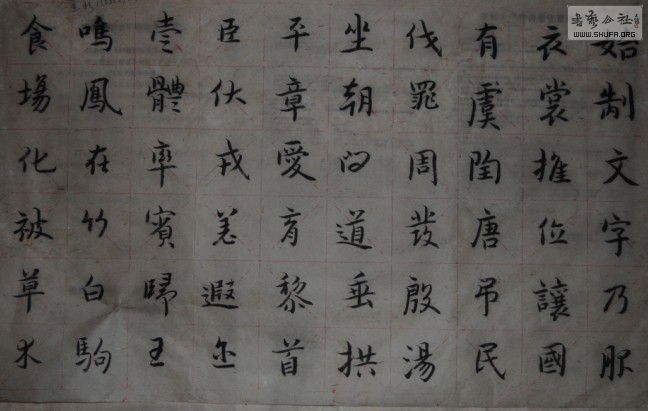 始制文字乃服
衣裳推位讓國
有虞陶唐弔民
伐罪周發殷湯
坐朝問道垂拱
平章愛育黎首
臣伏戎羌遐迩
壹體率賓歸王
鳴鳳在竹白駒
食場化被草木
書藝公社
WWW.SHUFA.ORG